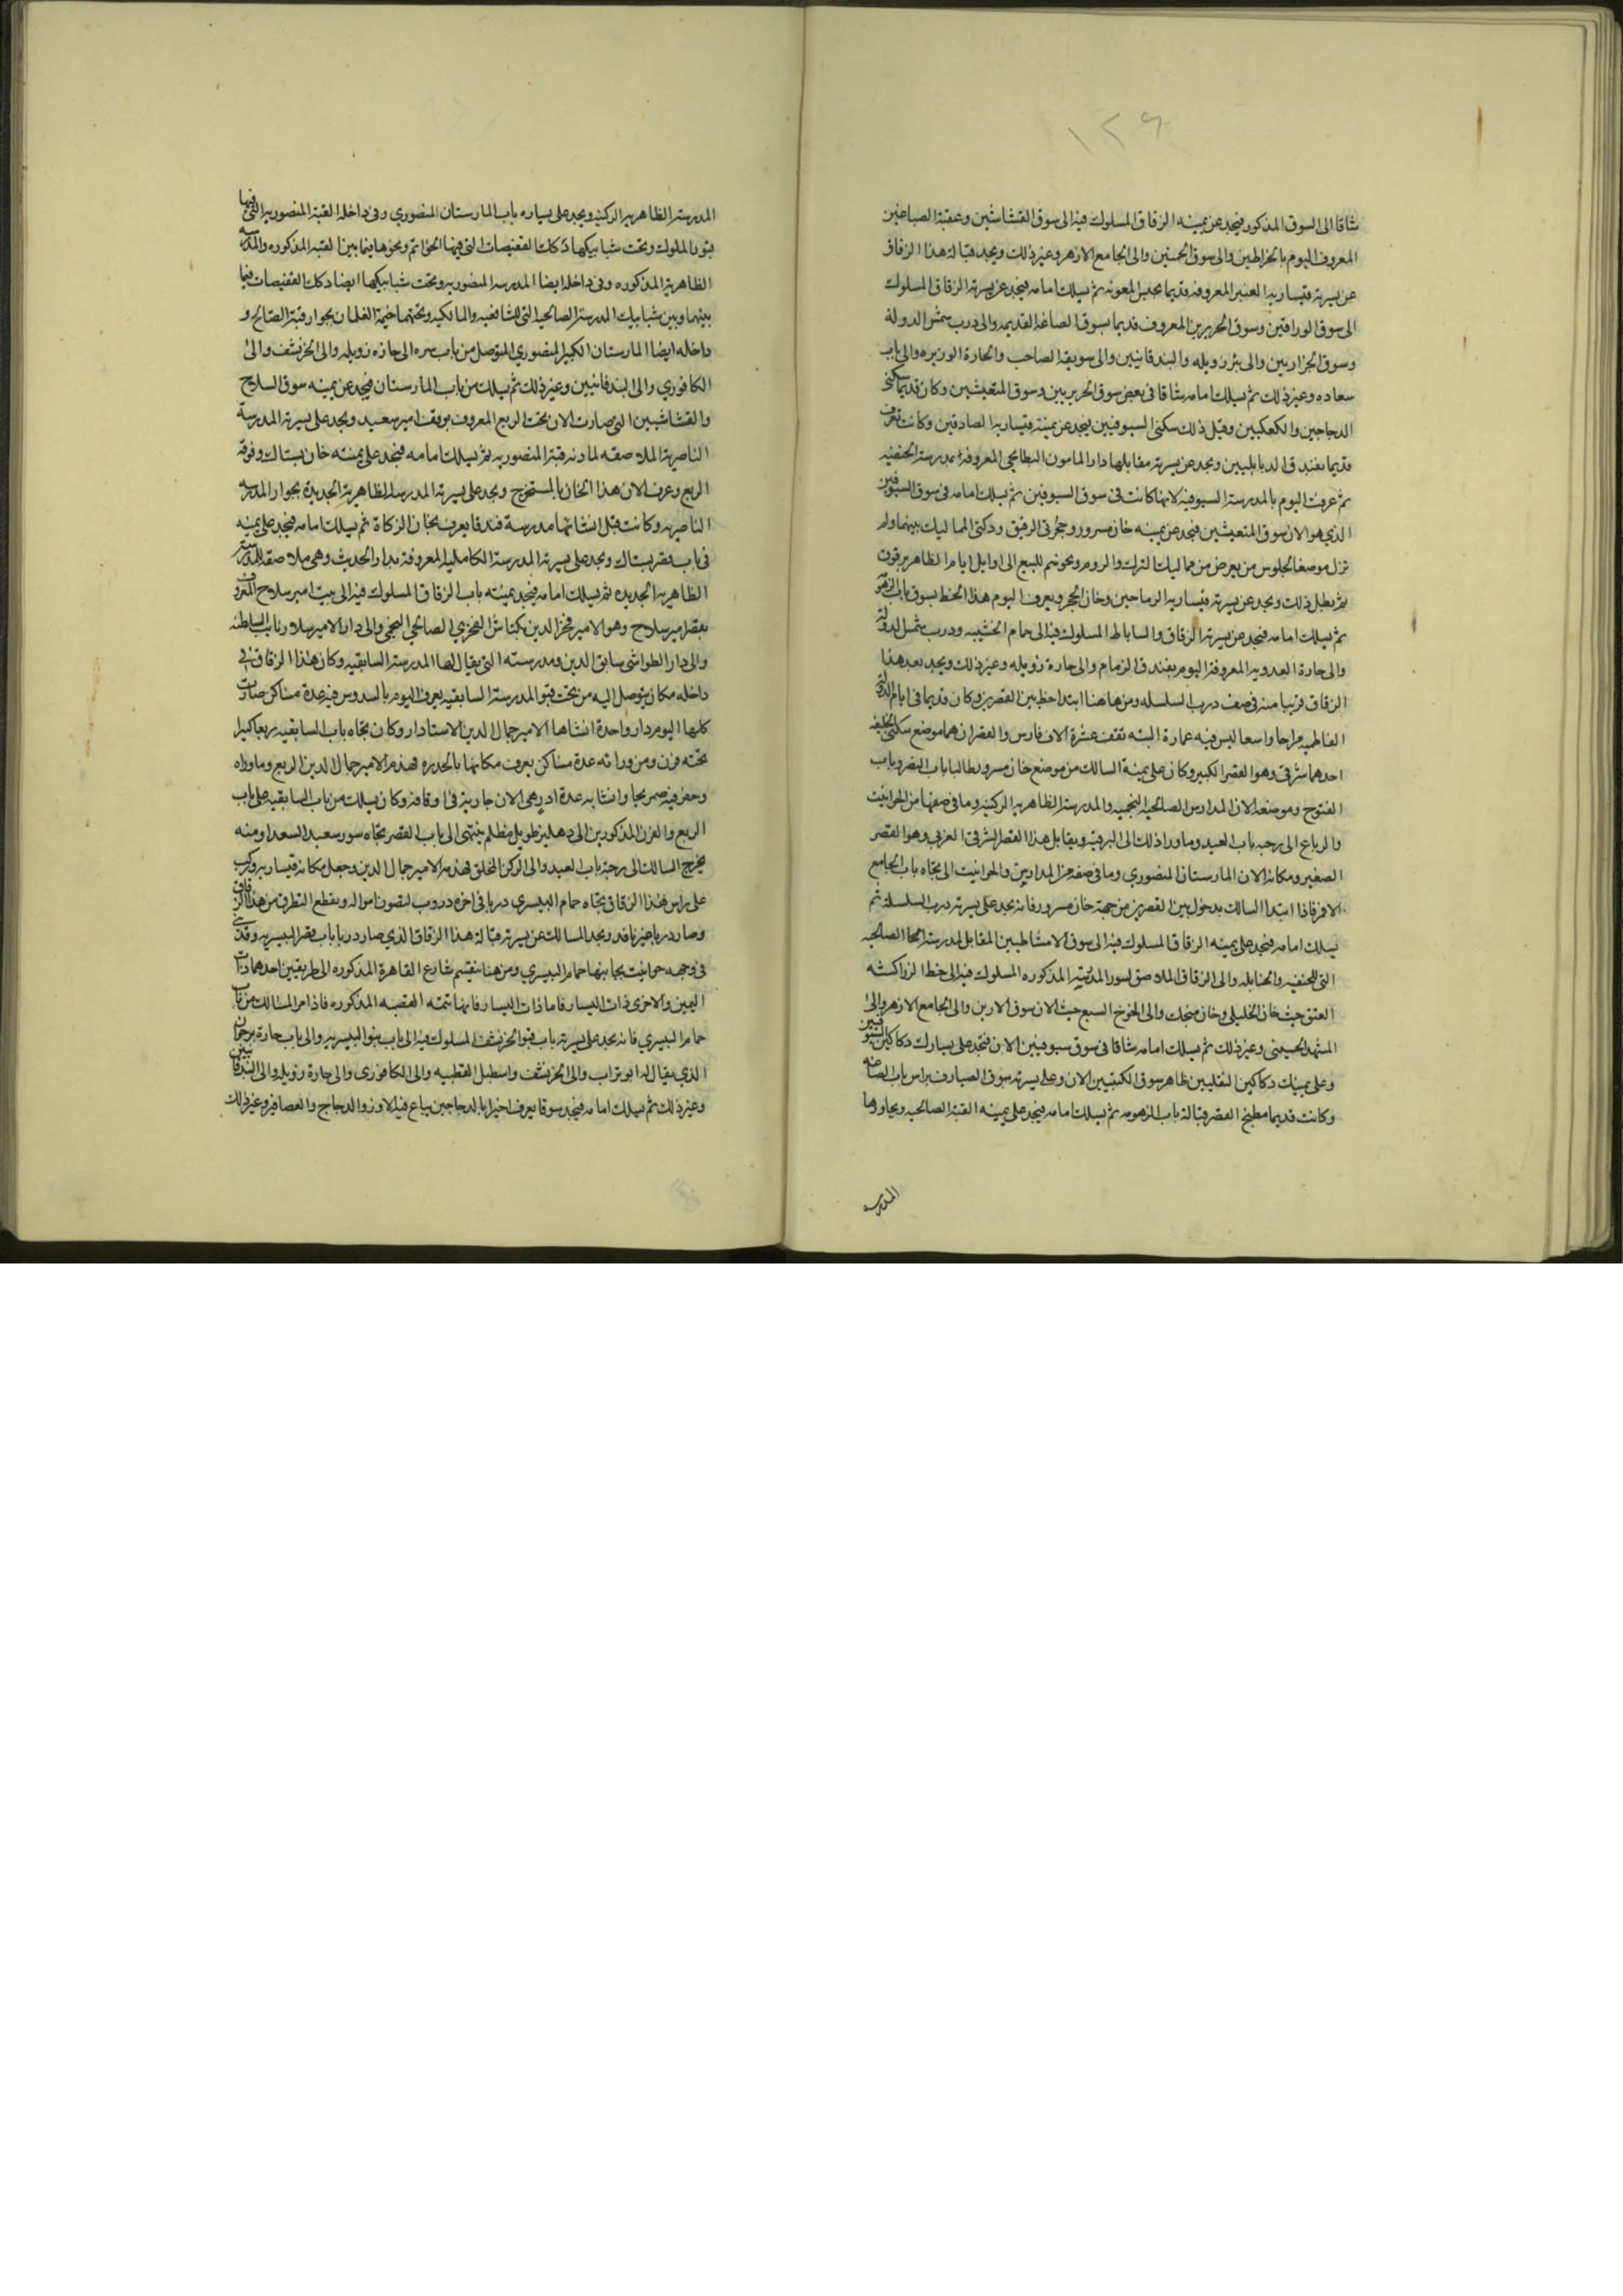 ١٢٩
شاقا الى السوق المذكور فيجد عن يمينه الزقاق المسلوك فيه الى سوق القشاشين وعقبة الصباغين
المعروف اليوم بالخراطين والى سوق الخميين والى الجامع الازهر وغير ذلك ويجد قبالة هذا الزقاق
عن يسرته قيسارية العنبر المعروفه قديما بحبس المعونه ثم يسلك امامه فيجد عن يسرته الزقاق المسلوك
الى سوق الوراقين وسوق الحريرين المعروف قديما بسوق الصاغه القديمه والى درب شمس الدولة
وسوق الجزاريين والى بئر زويله والبندقانيين والى سويقة الصاحب والحارة الوزيره والى باب
سعاده وغير ذلك ثم يسلك امامه شاقا فى بعض سوق الحريريين وسوق المتعيشين وكان قديما سكنى
الدجاجين والكعكيين وقبل ذلك سكنى السيوفيين فيجد عن يمينة قيسارية الصادقين وكانت تعرف
قديما بفندق الدبابليين ويجد عن يسرته مقابلها دار المامون البطايحي المعروفة بمدرسة الحنفيه
ثم عرفت اليوم بالمدرسة السيوفيه لانها كانت فى سوق السيوفين ثم يسلك امامه فى سوق السيوفين
الذي هو الان سوق المتعيشين فيجد عن يمينه خان مسرور وحجرتى الرقيق ودكتى المماليك بينهما ولم
تزل موضعا لجلوس من يعرض من مماليك الترك والروم ونحوهم للبيع الى اوايل ايام الظاهر برقوق
ثم بطل ذلك ويجد عن يسرته قيسارية الرماحين وخان الحجر ويعرف اليوم هذا الخط بسوق باب الزهومة
ثم يسلك امامه فيجد عن يسرته الزقاق والساباط المسلوك فيه الى حمام الخشيبه ودرب شمس الدولة
والى حارة العدويه المعروفة اليوم بفندق الزمام والى حارة زويله وغير ذلك ويجد بعد هذا
الزقاق قريبا منه فى صف درب السلسله ومن هاهنا ابتدا خط بين القصرين وكان قديما فى ايام الدولة
الفاطميه مراحا واسعا ليس فيه عمارة البته تقف عشرة الاف فارس والقصران هما موضع سكنى الخليفه
احدهما شرقى وهو القصر الكبير وكان على يمينة السالك من موضع خان مسرور طالبا باب النصر وباب
الفتوح وموضعه الان المدارس الصالحيه النجميه والمدرسة الظاهريه الركنيه وما فى صفها من الحوانيت
والرباع الى رحبه باب العيد وما وراذلك الى البرقيه ويقابل هذا القصر الشرقى العربي وهو القصر
الصغير ومكانه الان المارستان المنصوري وما فى صفه من المدارس والحوانيت الى تجاه باب الجامع
الاقمر فاذا ابتدا السالك بدخول بين القصرين من جهة خان مسرور فانه يجد على يسرته درب السلسلة ثم
يسلك امامه فيجد على يمينه الزقاق المسلوك فيه الى سوق الامشاطيين المقابل لمدرسة الصالحيه
التى للحنفيه والحنابله والى الزقاق الملاصق لسور المدرسة المذكوره المسلوك فيه الى خط الزراكشه
العتق حيث خان الخليلى وخان منجك والى الخوخ السبع حيث الان سوق الابارين والى الجامع الازهر والى
المشهد الحسينى وغير ذلك ثم يسلك امامه شاقا فى سوق سيوفيين الان فتجد على يسارك دكاكين السيوفيين
وعلى يمينك دكاكين النقليين ظاهر سوق الكتبيين الان وعلى يسرته سوق الصيارف براس باب الصاغه
وكانت قديما مطبخ القصر قبالة باب الزهومه ثم يسلك امامه فيجد على يمينه القبة الصالحيه ويجاورها
المدرسه
المدرسة الظاهريه الركنيه ويجد على يساره باب المارستان المنصوري وفى داخله القبة المنصوريه التى فيها
قبور الملوك وتحت شبابيكها دكك القفيصات التى فيها الخواتم ونحوها فيما بين القبه المذكوره والمدرسه
الظاهريه المذكوره وفى داخله ايضا المدرسه المنصوريه وتحت شبابيكها ايضا دكك القفيصات فيما
بينهما وبين شبابيك المدرسة الصالحيه التى للشافعيه والمالكيه وتحتهما خيمة الغلمان بجوار قبة الصالح و
داخله ايضا المارستان الكبير المنصوري المتوصل من باب سره الى حارة زويله والى الخرنشف والى
الكافوري والى البندقانيين وغير ذلك ثم يسلك من باب المارستان فيجد عن يمينه سوق السلاح
والقشاشيين التى صارت الان تحت الربع المعروف بوقف امير سعيد ويجد على يسرته المدرسة
الناصرية الملاصقه لمادنه قبة المنصوريه ثم يسلك امامه فيجد على يمينه خان بشتاك وفوقه
الربع وعرف الان هذا الخان بالمستخرج ويجد على يسرته المدرسة الظاهرية الجديدة بجوار المدرسه
الناصريه وكانت قبل انشائها مدرسة فندقا يعرف بخان الزكاة ثم يسلك امامه فيجد على يمينه
فى باب قصر بشتاك ويجد على يسرته المدرسة الكامليه المعروفة بدار الحديث وهى ملاصقة للمدرسة
الظاهريه الجديده ثم يسلك امامه فيجد يمينه باب الزقاق المسلوك فيه الى بيت امير سلاح المعروف
بقصر امير سلاح وهو الامير فخر الدين بكتاش الفخري الصالحي النجمى والى دار الامير سلار نايب السلطنه
والى دار الطواشى سابق الدين ومدرسته التى يقال لها المدرسة السابقيه وكان هذا الزقاق فى
داخله مكان يتوصل اليه من تحت قبو المدرسة السابقيه يعرف اليوم بالسدوس فيه عدة مساكن صارت
كلها اليوم دار واحدة انشاها الامير جمال الدين الاستادار وكان تجاه باب السابقيه ربعا كبيرا
تحته فرن ومن ورائه عدة مساكن يعرف مكانها بالحدره فهدم الامير جمال الدين الربع وماوراه
وحفر فيه صهريجا وانشا به عدة ادر هى الان جارية فى اوقافه وكان يسلك من باب السابقيه على باب
الربع والفرن المذكورين الى دهليز طويل مظلم ينتهى الى باب القصر تجاه سور سعيد السعدا ومنه
يخرج السالك الى رحبة باب العيد والى الركن المخلق فهدم الامير جمال الدين وجعل مكانه قيسارية وركب
على راس هذا الزقاق تجاه حمام البيسري دربا فى اخره دروب لتصون امواله وبقطع التطرق من هذا الزقاق
وصار دربا غير نافد ويجد السالك عن يسرته قبالة هذا الزقاق الذي صار دربا باب قصر البيسريه وقد بنى
فى وجهه حوانيت بجانبها حمام البيسري ومن هنا ينقسم شارع القاهرة المذكوره الى طريقين احدهما ذات
اليمين والاخرى ذات اليسار فاما ذات اليسار فانها تتمه القصبه المذكوره فاذا مر السالك من باب
حمام البيسري فانه يجد على يسرته باب قبو الخرنشف المسلوك فيه الى باب سر البيسريه والى باب حارة برجوان
الذي يقال له ابو تراب والى الخرنشف واسطبل القطبيه والى الكافورى والى حارة زويله والى البندقانيين
وغير ذلك ثم يسلك امامه فيجد سوقا يعرف اخيرا بالدجاجين يباع فيه الاوز والدجاج والعصافير وغير ذلك